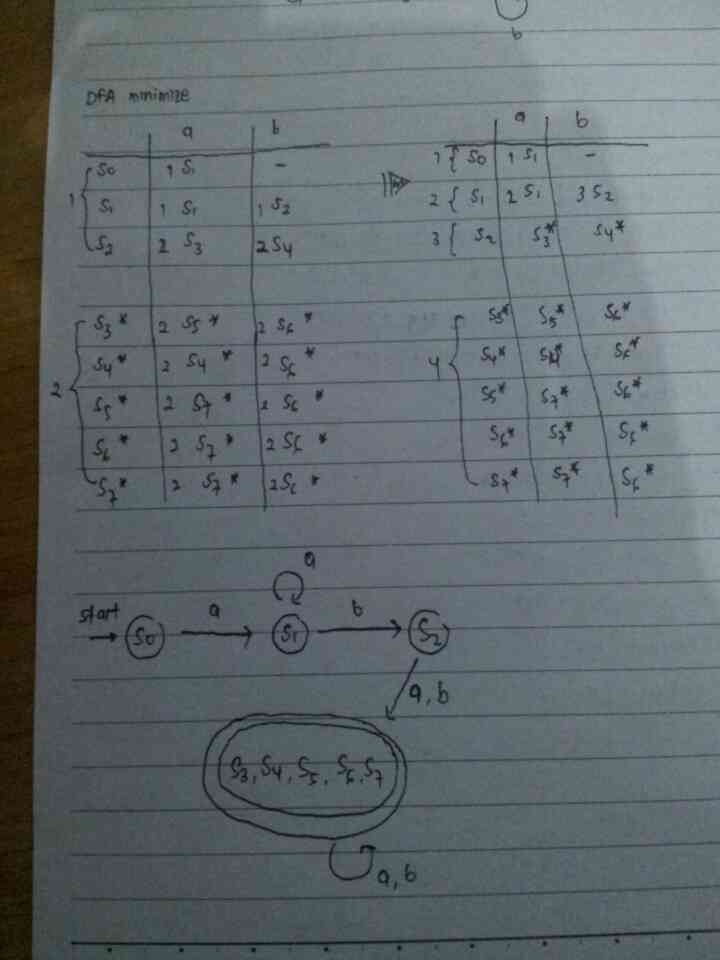 b
DFA minimize
a b
1 { S0 1 S1 -
S1 1 S1 1 S2
S2 2 S3 2 S4
2 { S3* 2 S5* 2 S6*
S4* 2 S4* 2 S6*
S5* 2 S7* 2 S6*
S6* 2 S7* 2 S6*
S7* 2 S7* 2 S6*
a b
1 { S0 1 S1 -
2 { S1 2 S1 3 S2
3 { S2 S3* S4*
4 { S3* S5* S6*
S4* S4* S6*
S5* S7* S6*
S6* S7* S6*
S7* S7* S6*
a
start S0 a S1 b S2
a, b
S3, S4, S5, S6, S7
a, b